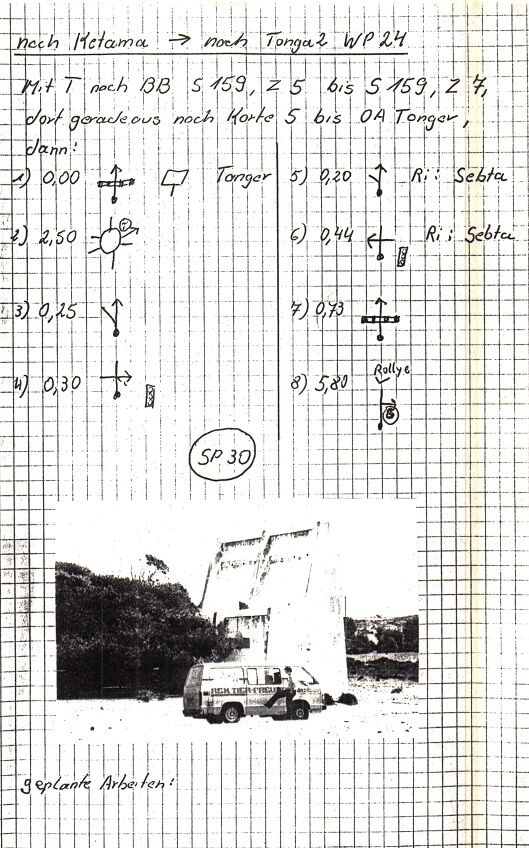 nach Ketama → nach Tonga2 WP 24
Mit T nach BB S 159, Z 5 bis S 159, Z 7,
dort geradeaus nach Karte 5 bis OA Tonger,
dann:
1) 0,00 Tonger
2) 2,50
3) 0,25
4) 0,30
5) 0,20 Ri: Sebta
6) 0,44 Ri: Sebta
7) 0,73
8) 5,80 Rollye
SP 30
geplante Arbeiten: